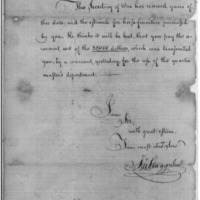 The Secretary of War has viewed yours of
this date, and the estimate for his quantities purchased
by you. He thinks it will be best, that you pay the a-
mount out of the 20000 dollars, which was transferred
you, by a warrant yesterday for the use of the quarter
master's department.
I am
Sir,
with great esteem
Your most obed serv